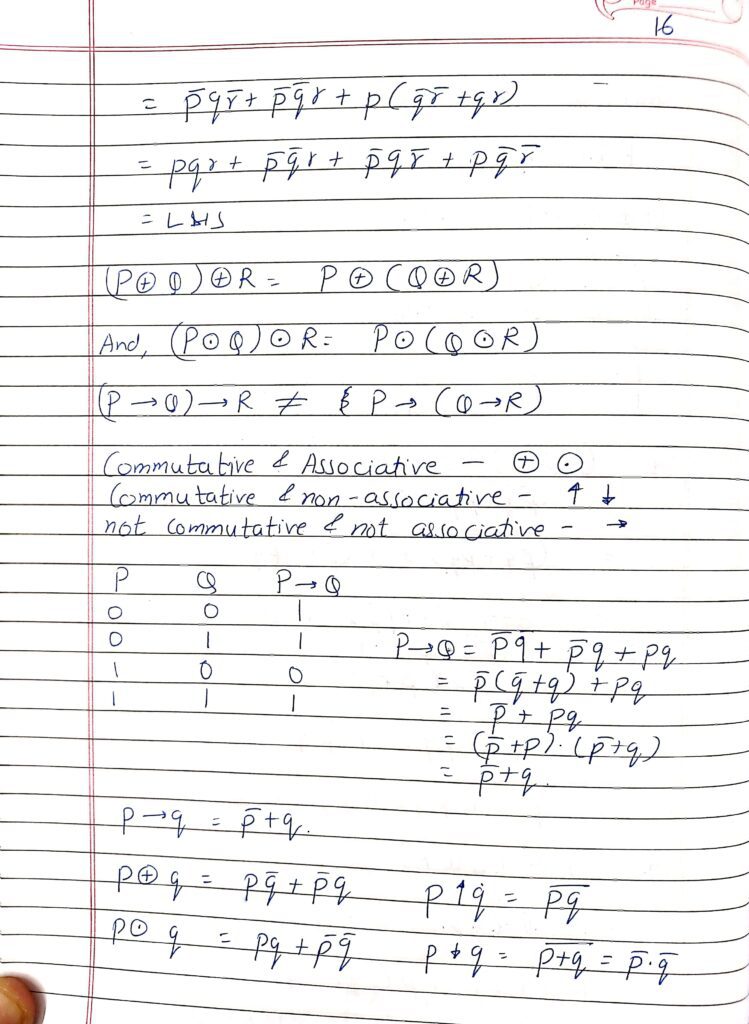 Page
16
= p̄qr̄ + p̄q̄r + p(q̄r̄ + qr)
= pqr + p̄q̄r + p̄qr̄ + pq̄r̄
= LHS
(P⊕Q)⊕R = P⊕(Q⊕R)
And, (P⊙Q)⊙R = P⊙(Q⊙R)
(P→Q)→R ≠ P→(Q→R)
Commutative & Associative — ⊕ ⊙
Commutative & non-associative - ↑ ↓
not commutative & not associative - →
P Q P→Q
0 0 1
0 1 1 P→Q = p̄q̄ + p̄q + pq
1 0 0 = p̄(q̄+q) + pq
1 1 1 = p̄ + pq
= (p̄+p).(p̄+q)
= p̄+q.
p→q = p̄+q.
p⊕q = pq̄ + p̄q p↑q = p̅q̅
p⊙q = pq + p̄q̄ p↓q = p̅+̅q̅ = p̄.q̄